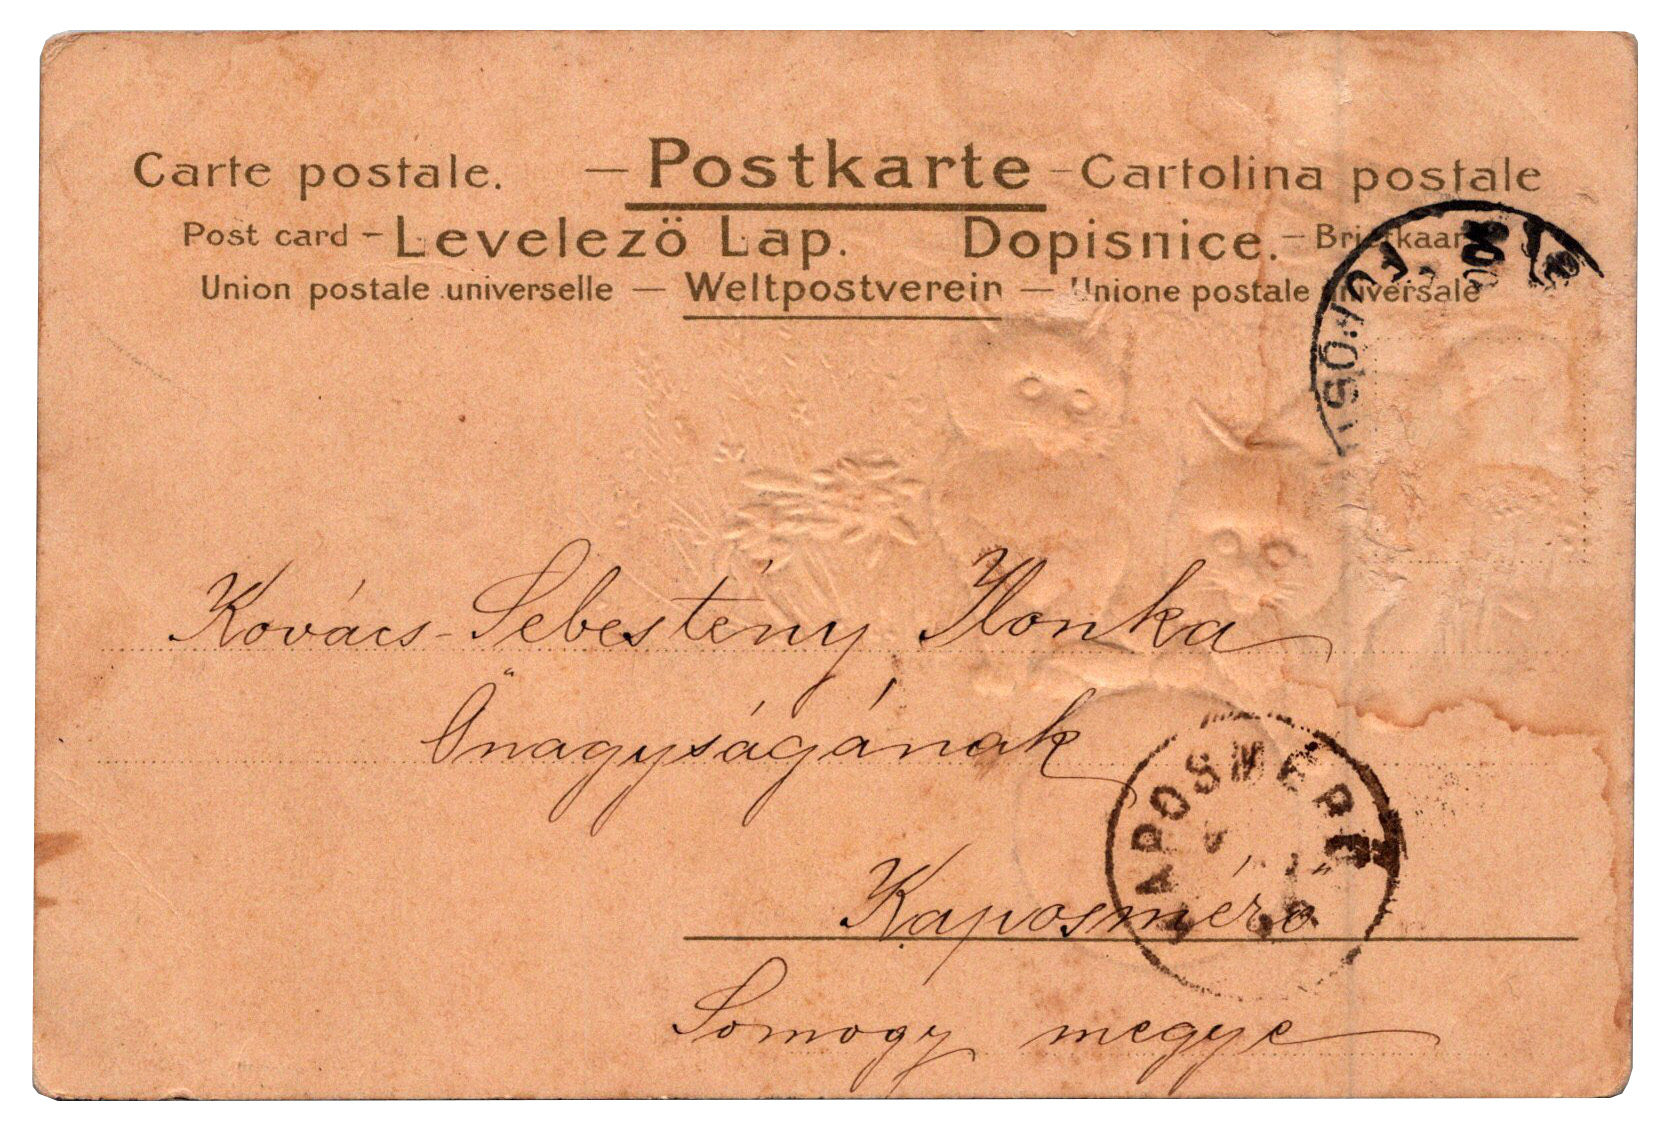 Carte postale. — Postkarte – Cartolina postale
Post card – Levelezö Lap. Dopisnice. – Briefkaart
Union postale universelle — Weltpostverein — Unione postale universale
Kovács-Sebestény Ilonka
Őnagyságának
KAPOSMÉRŐ
Kaposmérő
Somogy megye